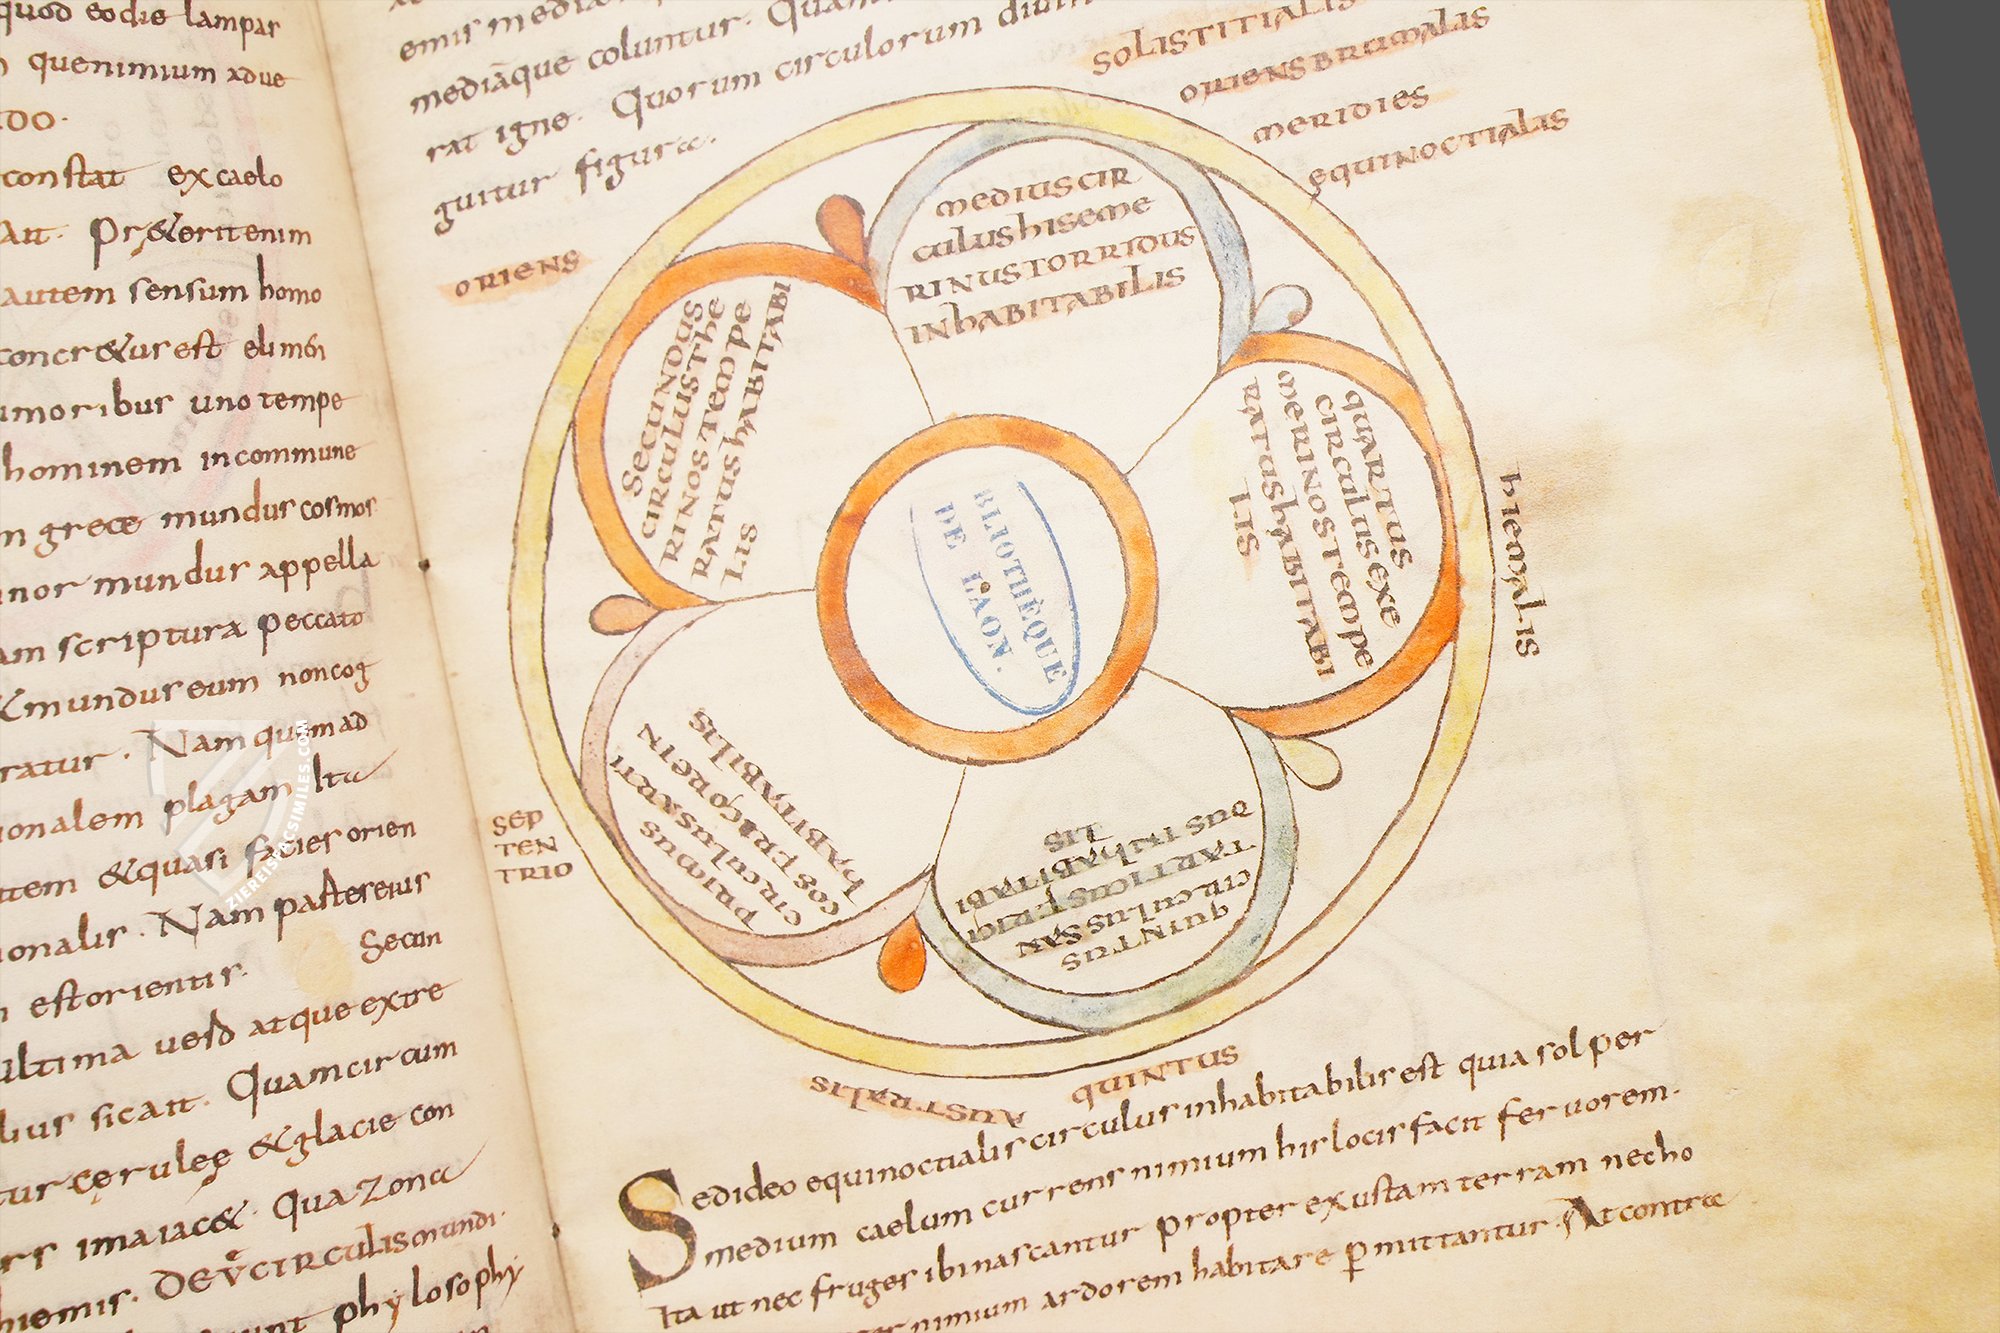 quod eodie lampar
quenimium adue
constat ex caelo
Pr&eritenim
autem sensum homo
concr&ur est
umoribus uno tempe
hominem incommune
grece mundus cosmos
mundur appella
scriptura peccato
&mundureum noncog
ratur. Nam quemad
ionalem plagam Ita
&quasi facier orien
ionalir. Nam pastereiur
estorientir. Secun
ultima atque extre
sicait. Quamcircum
cęruleę &glacie con
imaiac& Qua zona
hiemir. DEV̊CIRCULIS mundi.
phylosophy
mediāque coluntur.
rat igne. Quorum circulorum
guitur figurae.
SOLISTITIALIS
ORIENS BRUMALIS
MERIDIES
ęQUINOCTIALIS
ORIENS
MEDIUSCIR
CULUSHISEME
RINUSTORRIDUS
INHABITABILIS
SECUNDUS
CIRCULUSTHE
RINOSTEMPE
RATUSHABITABI
LIS
QUARTUS
CIRCULUSEXE
MERINOSTEMPE
RATUSHABITABI
LIS
hIEMALIS
BLIOTHÈQUE
DE LAON.
PRIMUS
CIRCULUSARTI
COSFRIGOREIN
HABITABILIS
QUINTUS
CIRCULUSSAN
TARTICUSFRIGI
DUSINHABITABI
LIS
SEP
TEN
TRIO
AUSTRALIS
QUINTUS
Sedideo equinoctialircirculur inhabitabilirest quia sol per
medium caelum currenr nimium hirlocirfacit feruorem.
Ita ut nec fruger ibinarcantur propter exustam terram necho
nimium ardorem habitare pmittantur. At contra
ZIEREISFACSIMILES.COM